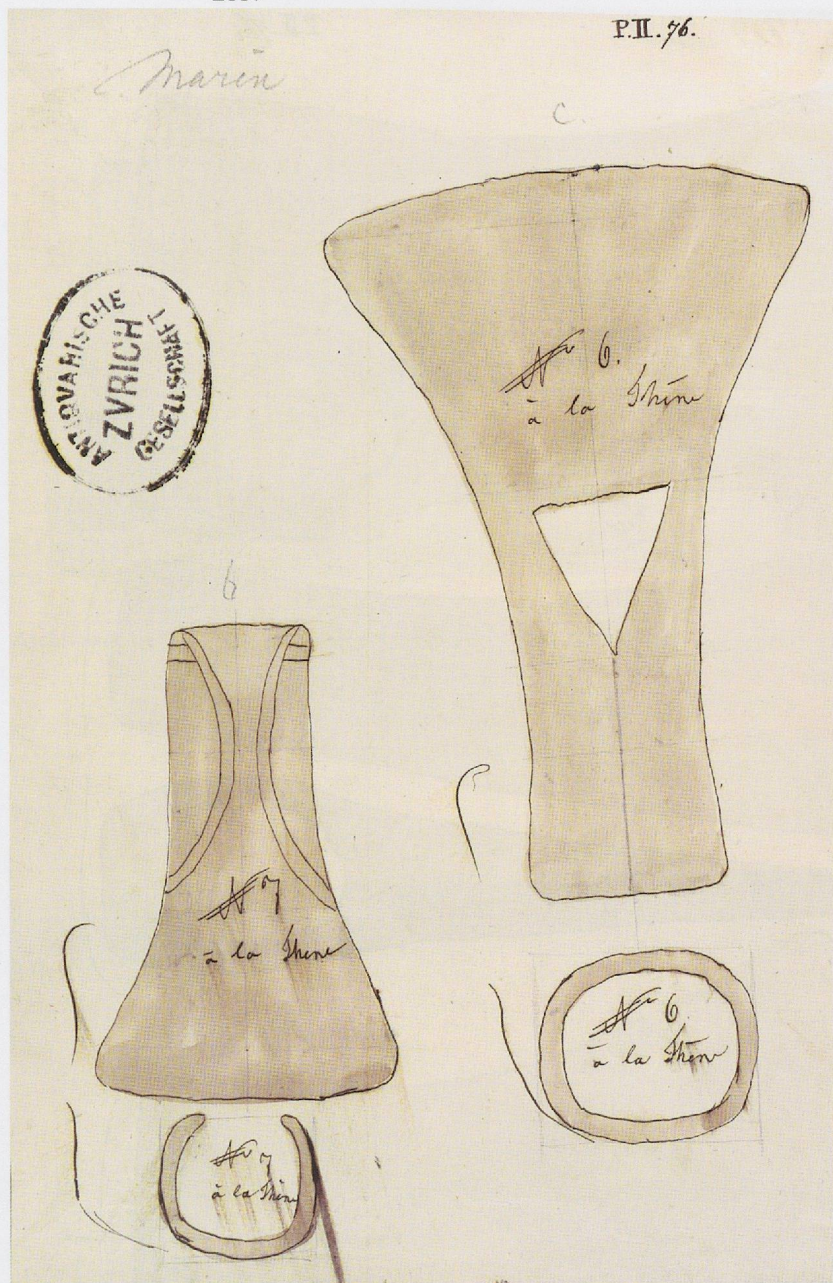 P.II.76.
Marin
c.
ANTIQVARISCHE
ZVRICH
GESELLSCHAFT
No 6.
à la Thène
b
No 7
à la Thène
No 6
à la Thène
No 7
à la Thène